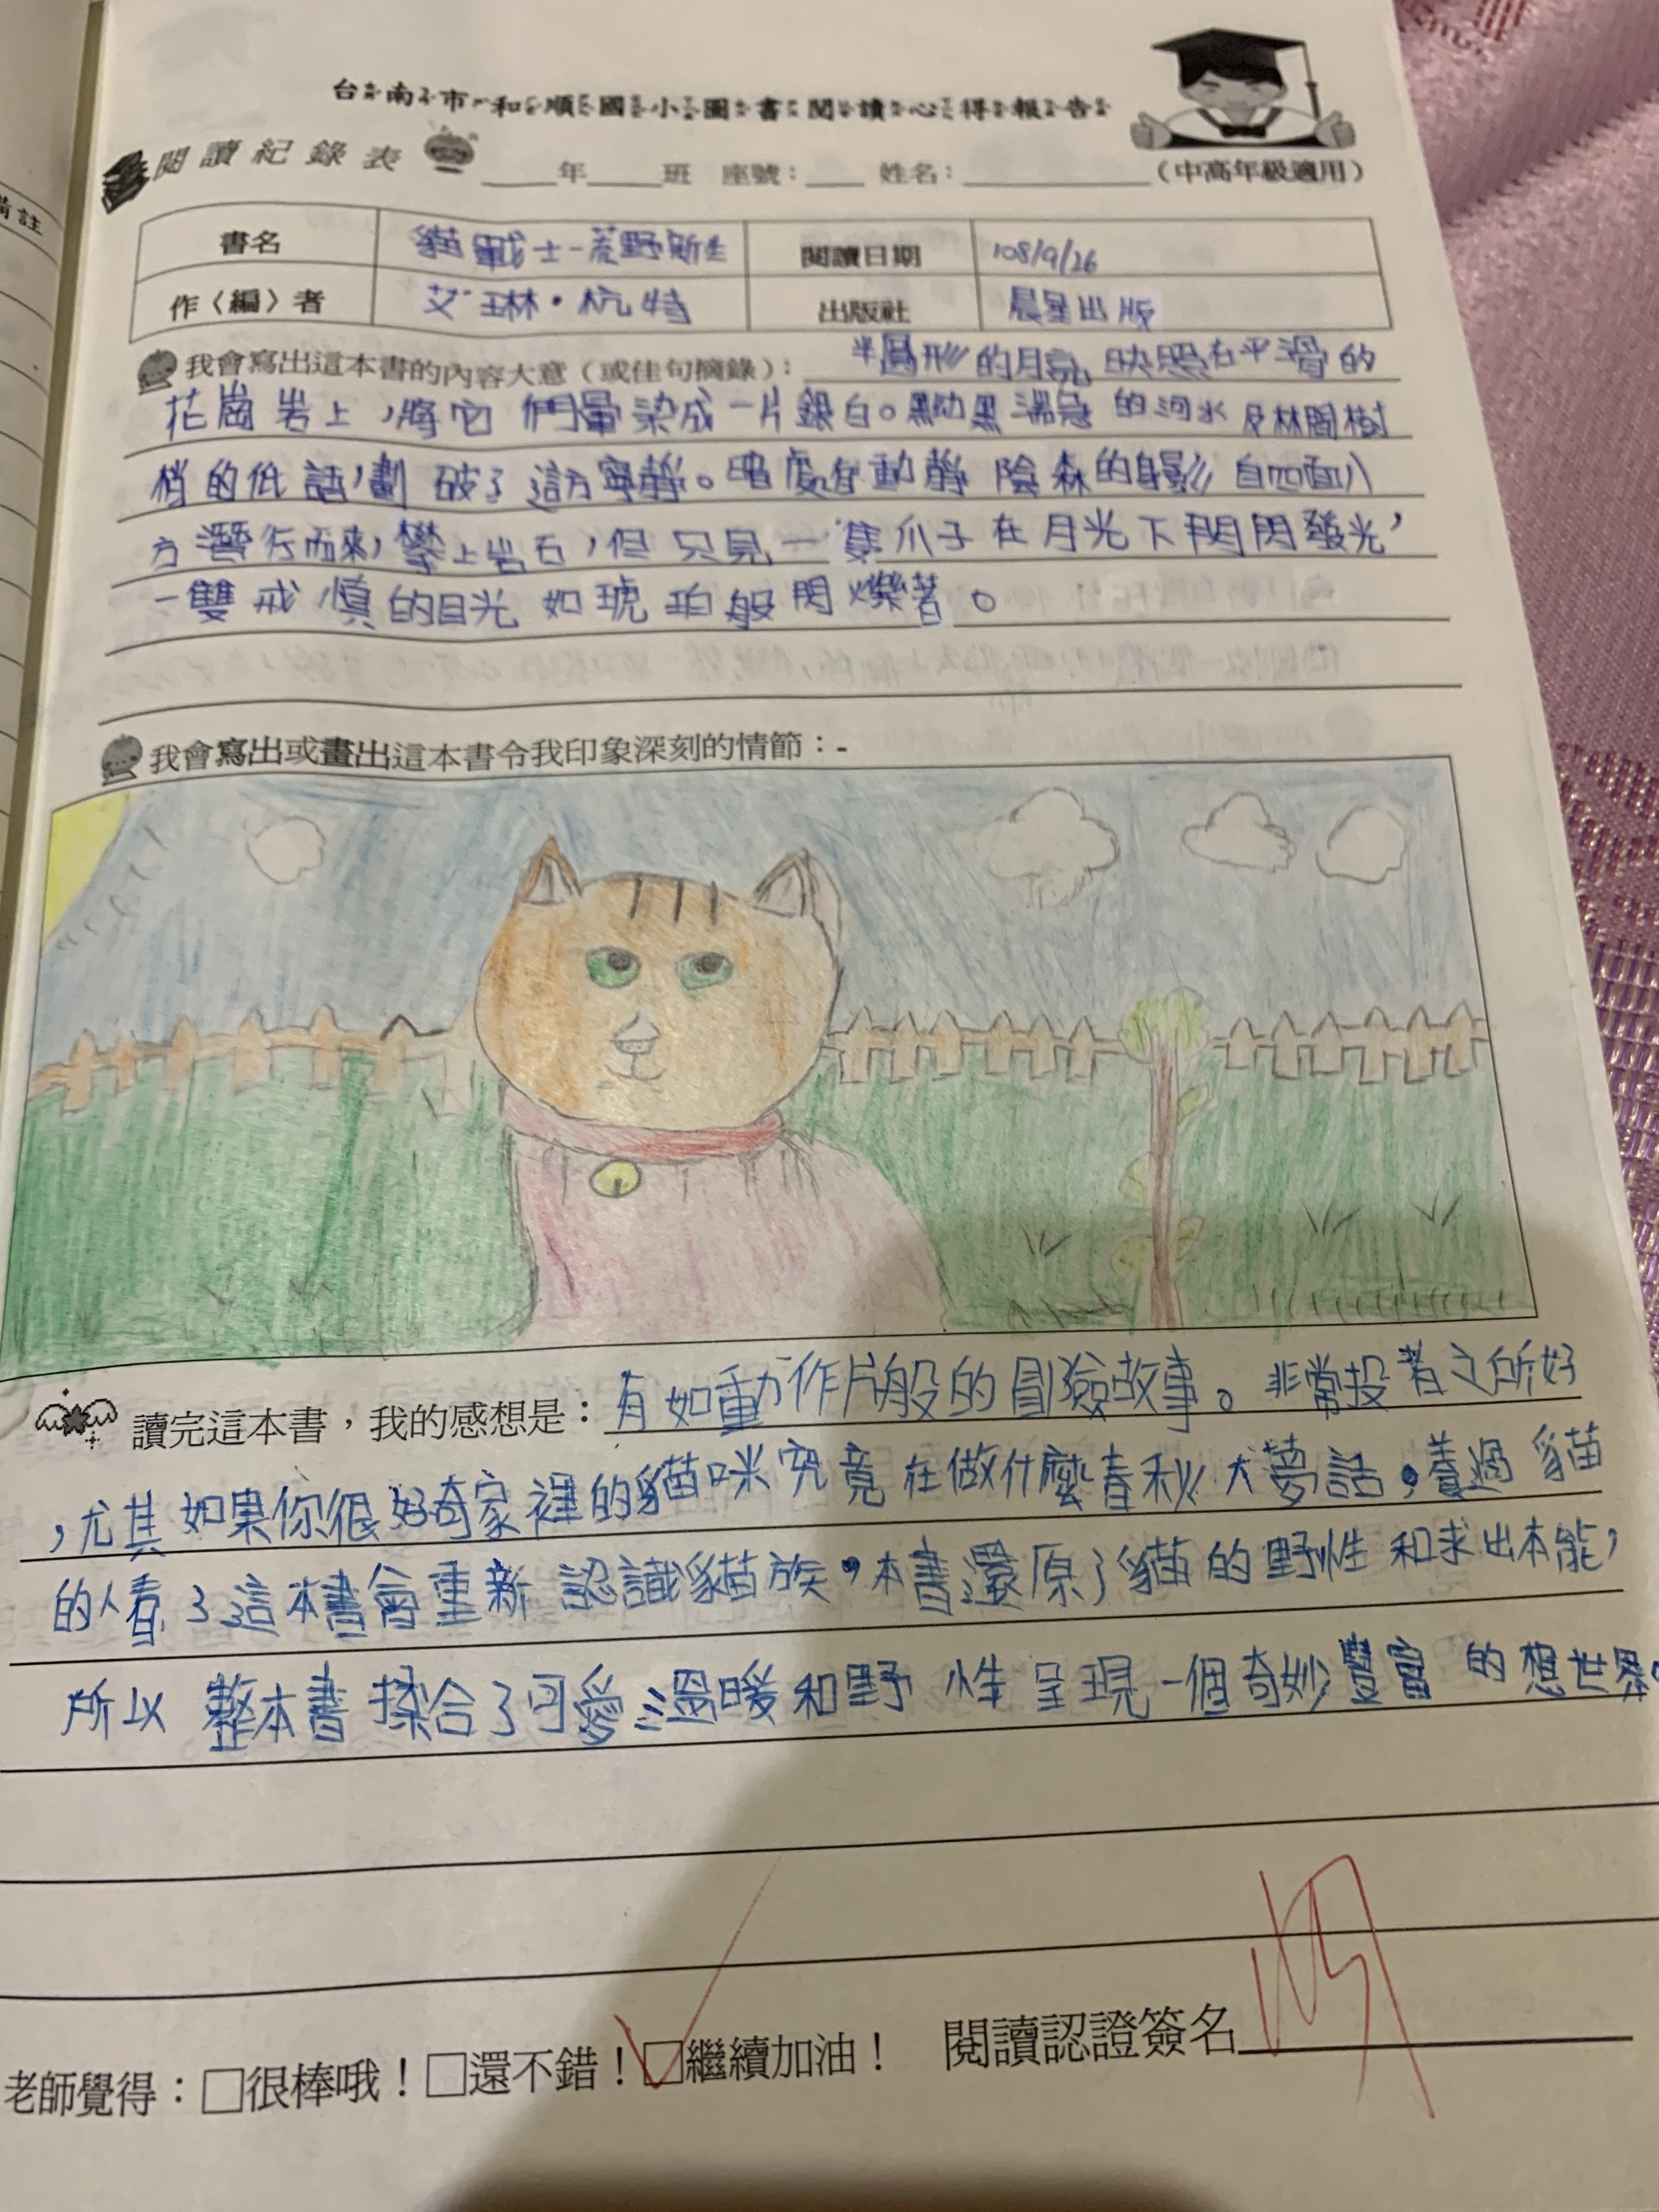 台南市和順國小圖書閱讀心得報告
閱讀紀錄表 ____年____班 座號：___ 姓名：__________（中高年級適用）
備註
書名 貓戰士-荒野新生 閱讀日期 108/9/26
作〈編〉者 艾琳·杭特 出版社 晨星出版
我會寫出這本書的內容大意（或佳句摘錄）：半圓形的月亮映照在平滑的
花崗岩上，將它們暈染成一片銀白。黝黑湍急的河水及林間樹
梢的低語，劃破了這方寧靜。暗處有動靜 陰森的身影自四面八
方潛行而來，攀上岩石，但只見一隻爪子在月光下閃閃發光，
一雙戒慎的目光如琥珀般閃爍著。
我會寫出或畫出這本書令我印象深刻的情節：-
讀完這本書，我的感想是：有如動作片般的冒險故事。非常投者之所好
，尤其如果你很好奇家裡的貓咪究竟在做什麼春秋大夢話，養過貓
的人看了這本書會重新認識貓族，本書還原了貓的野性和求出本能，
所以整本書揉合了可愛、溫暖和野性呈現一個奇妙豐富的想世界。
老師覺得：□很棒哦！□還不錯！□繼續加油！ 閱讀認證簽名